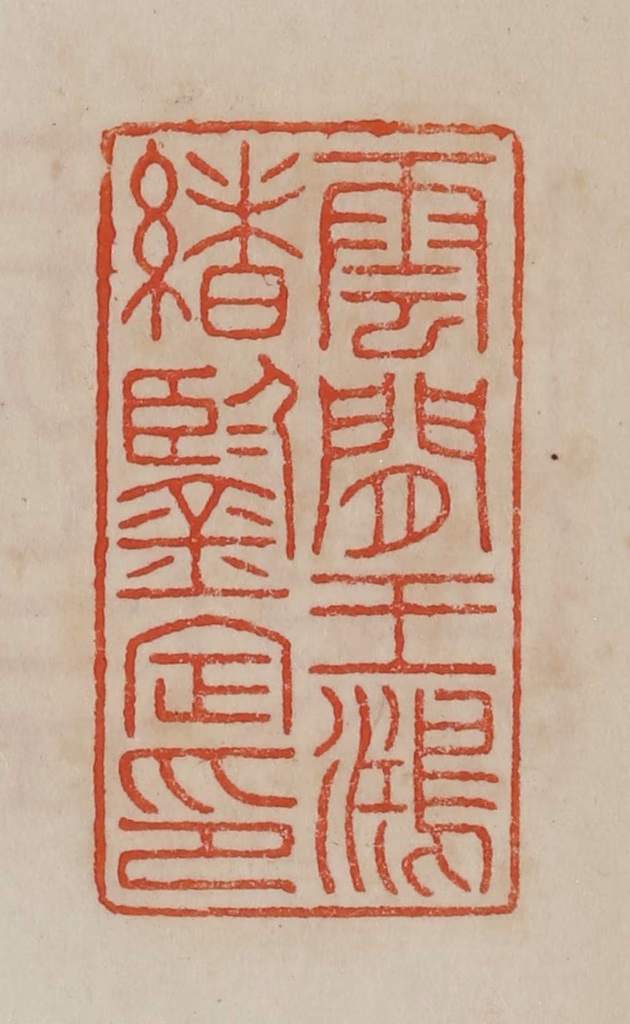 雲閒王鴻
緒鑒定印